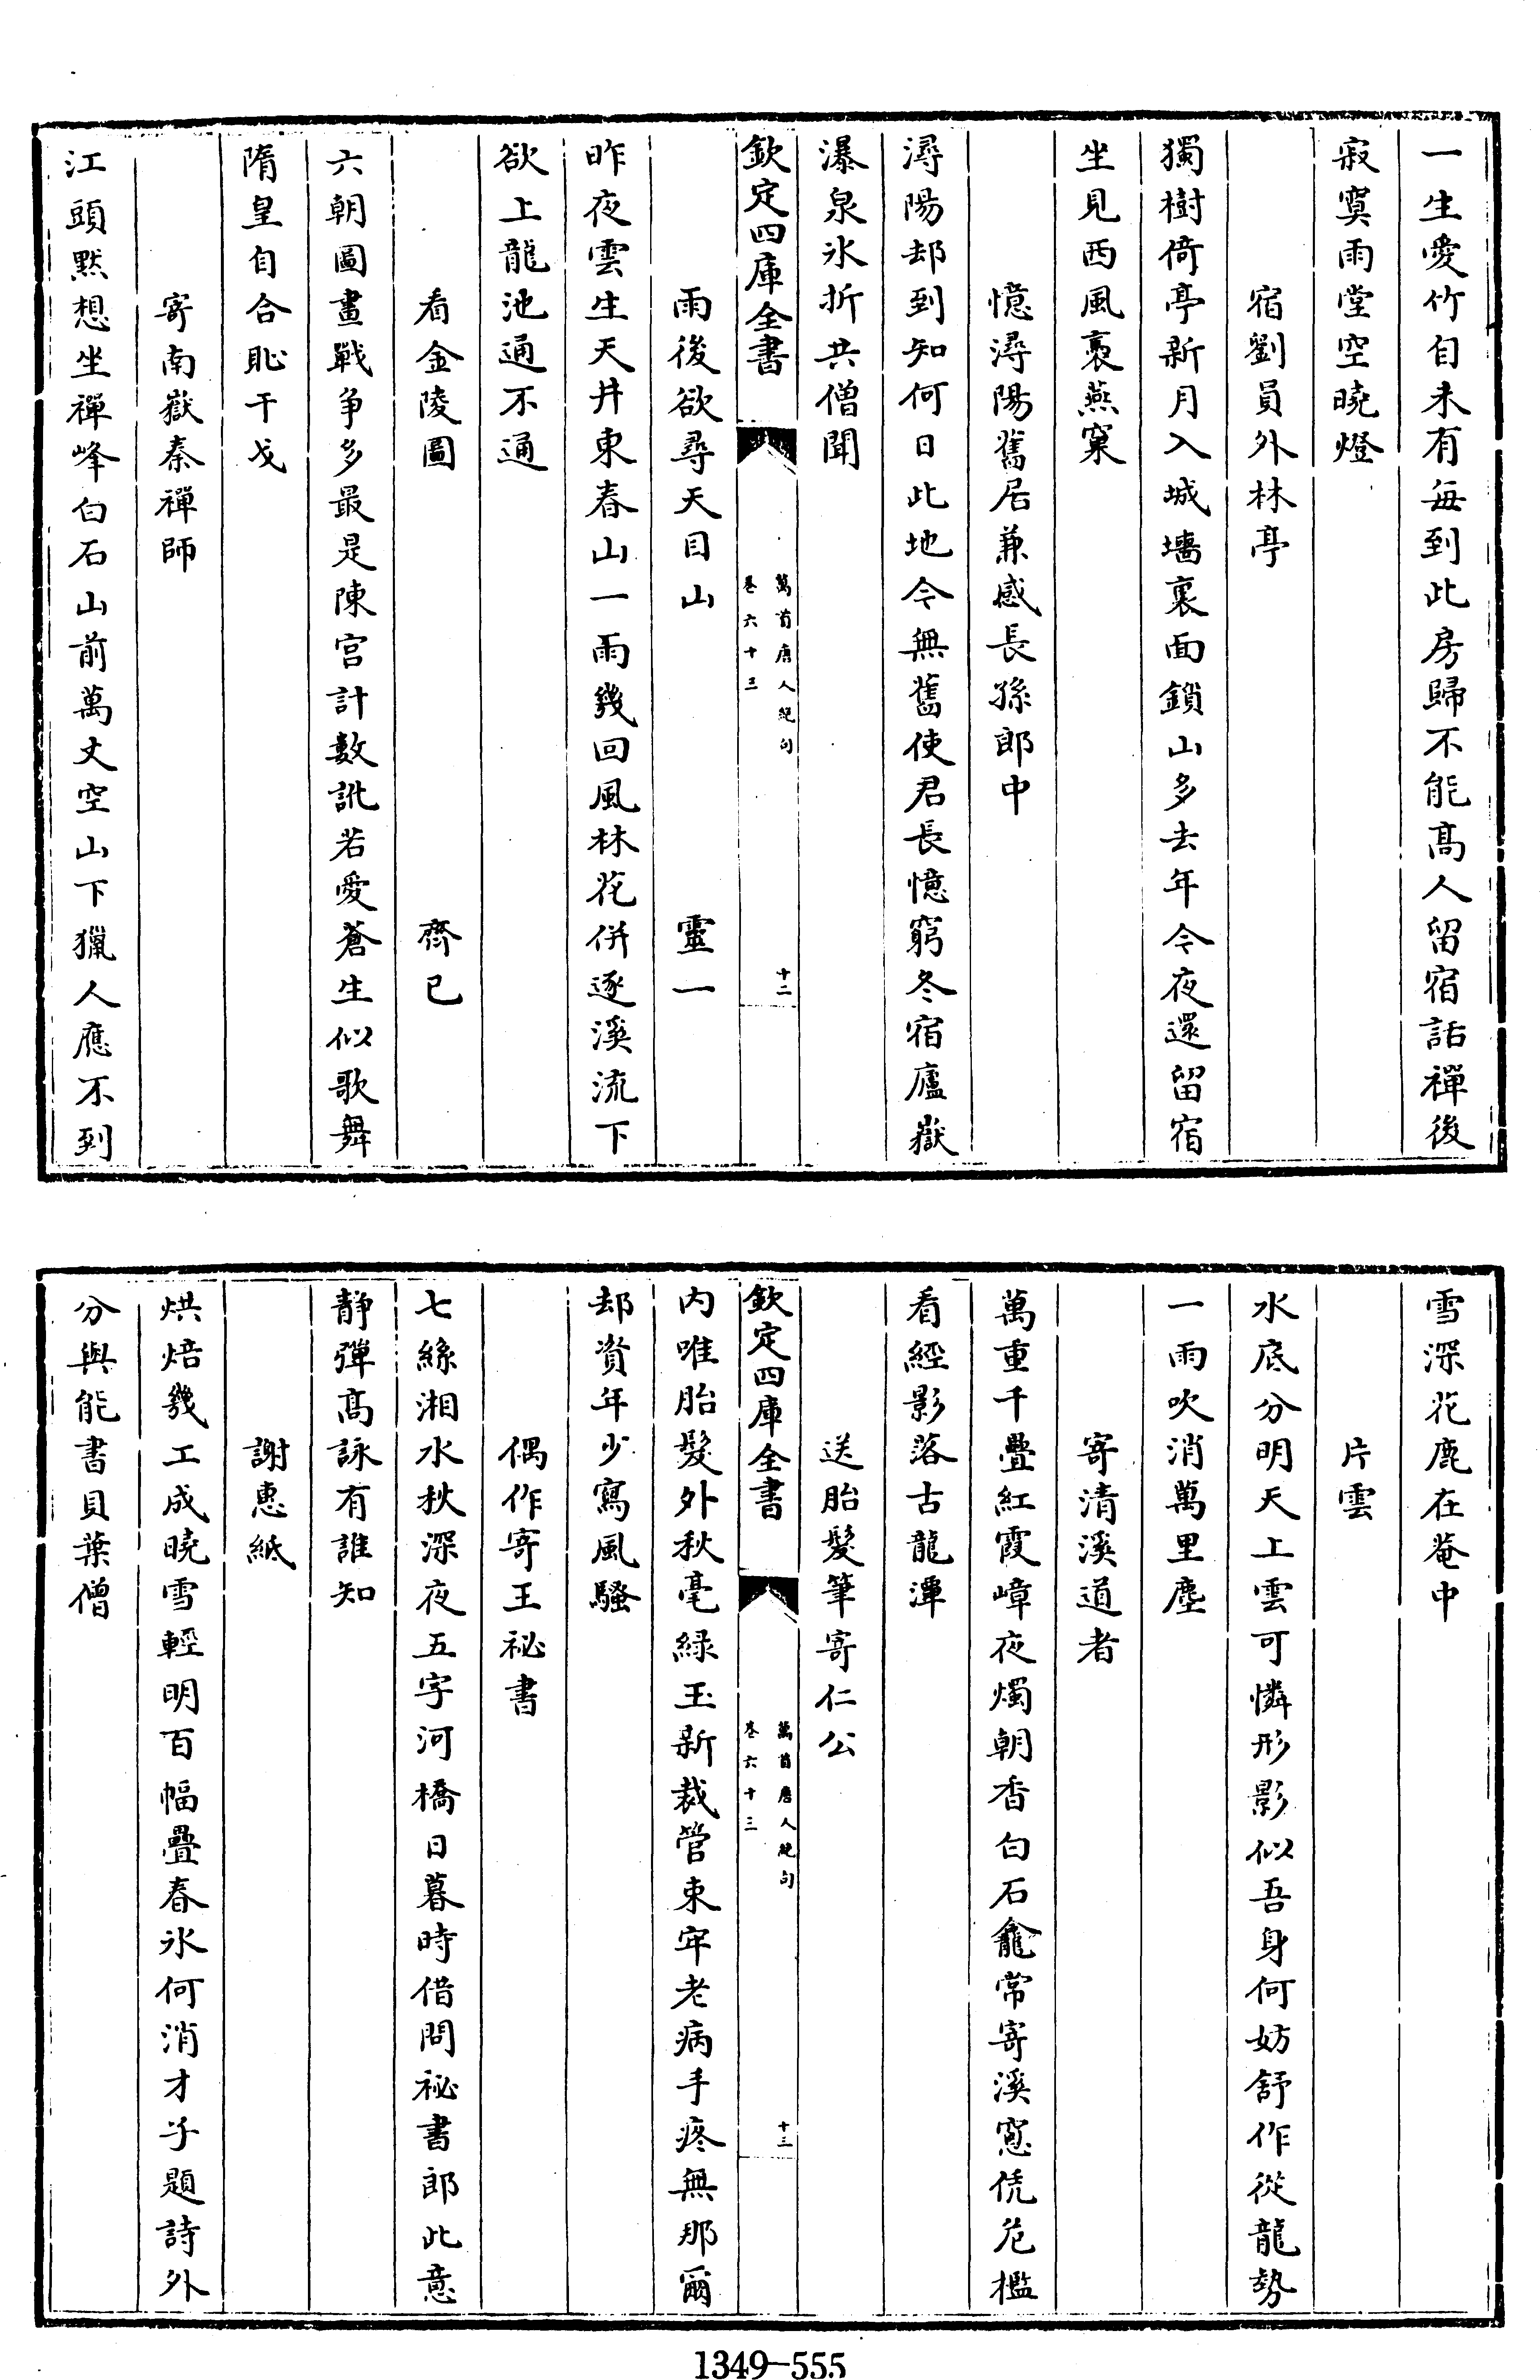 一生愛竹自未有每到此房歸不能高人留宿話禪後
寂寞雨堂空曉燈
宿劉員外林亭
獨樹倚亭新月入城墻裏面鎖山多去年今夜還留宿
坐見西風裛燕窠
憶潯陽舊居兼感長孫郎中
潯陽却到知何日此地今無舊使君長憶窮冬宿廬嶽
瀑泉氷折共僧聞
欽定四庫全書
萬首唐人絶句
卷六十三
十二
雨後欲尋天目山 靈一
昨夜雲生天井東春山一雨幾回風林花併逐溪流下
欲上龍池通不通
看金陵圖 齊已
六朝圖畫戰争多最是陳宫計數訛若愛蒼生似歌舞
隋皇自合恥干戈
寄南嶽泰禪師
江頭黙想坐禪峰白石山前萬丈空山下獵人應不到
雪深花鹿在菴中
片雲
水底分明天上雲可憐形影似吾身何妨舒作從龍勢
一雨吹消萬里塵
寄清溪道者
萬重千疊紅霞嶂夜燭朝香白石龕常寄溪窓凭危檻
看經影落古龍潭
送胎髮筆寄仁公
欽定四庫全書
萬首唐人絶句
卷六十三
十三
内唯胎髮外秋毫緑玉新裁管束牢老病手疼無那爾
却資年少寫風騷
偶作寄王祕書
七絲湘水秋深夜五字河橋日暮時借問祕書郎此意
静彈高詠有誰知
謝惠紙
烘焙幾工成曉雪輕明百幅疊春氷何消才子題詩外
分與能書貝葉僧
1349-555